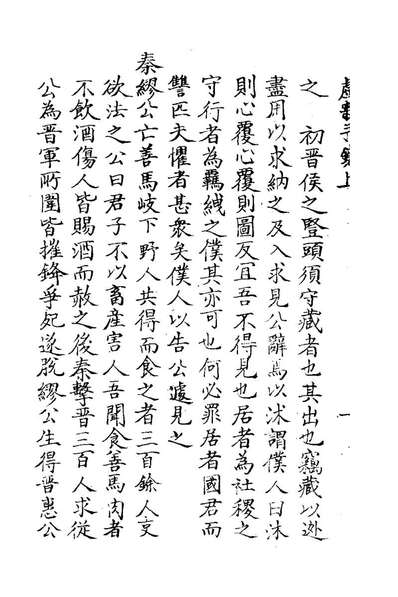 虛齋手鏡上 一
之 初晉侯之豎頭須守藏者也其出也竊藏以逃
盡用以求納之及入求見公辭焉以沐謂僕人曰沐
則心覆心覆則圖反宜吾不得見也居者為社稷之
守行者為羈紲之僕其亦可也何必罪居者國君而
讐匹夫懼者甚衆矣僕人以告公遽見之
秦繆公亡善馬岐下野人共得而食之者三百餘人吏
欲法之公曰君子不以畜産害人吾聞食善馬肉者
不飲酒傷人皆賜酒而赦之後秦擊晉三百人求從
公為晉軍所圍皆摧鋒爭死遂脫繆公生得晉惠公